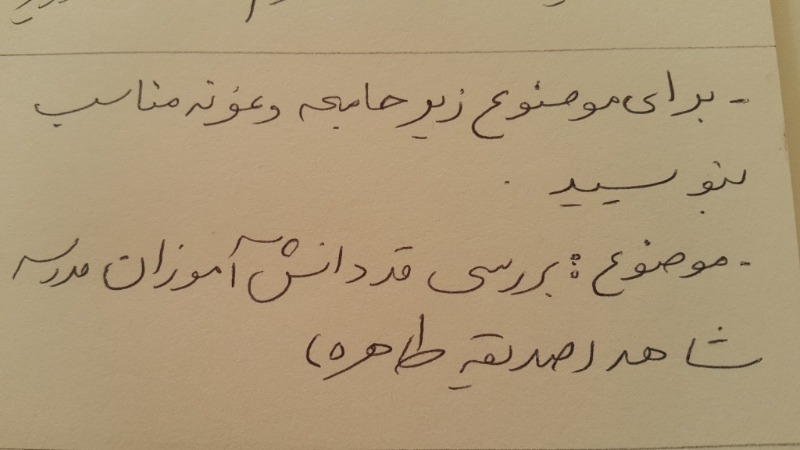 - برای موضوع زیر جامعه و نمونه مناسب
بنویسید .
- موضوع : بررسی قد دانش آموزان مدرسه
شاهد (صدیقه طاهره)